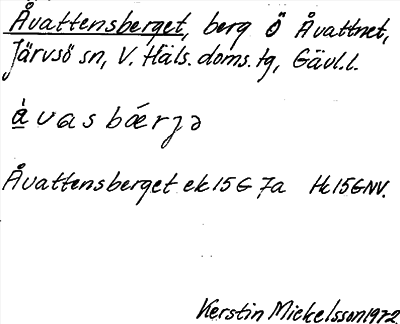 Åvattensberget, berg Ö Åvattnet,
Järvsö sn, V. Häls. doms. tg, Gävl.l.
å̀ v a s b ǽ r j ə
Åvattensberget ek 15 G 7a Hk 15 G NV.
Kerstin Mickelsson 1972